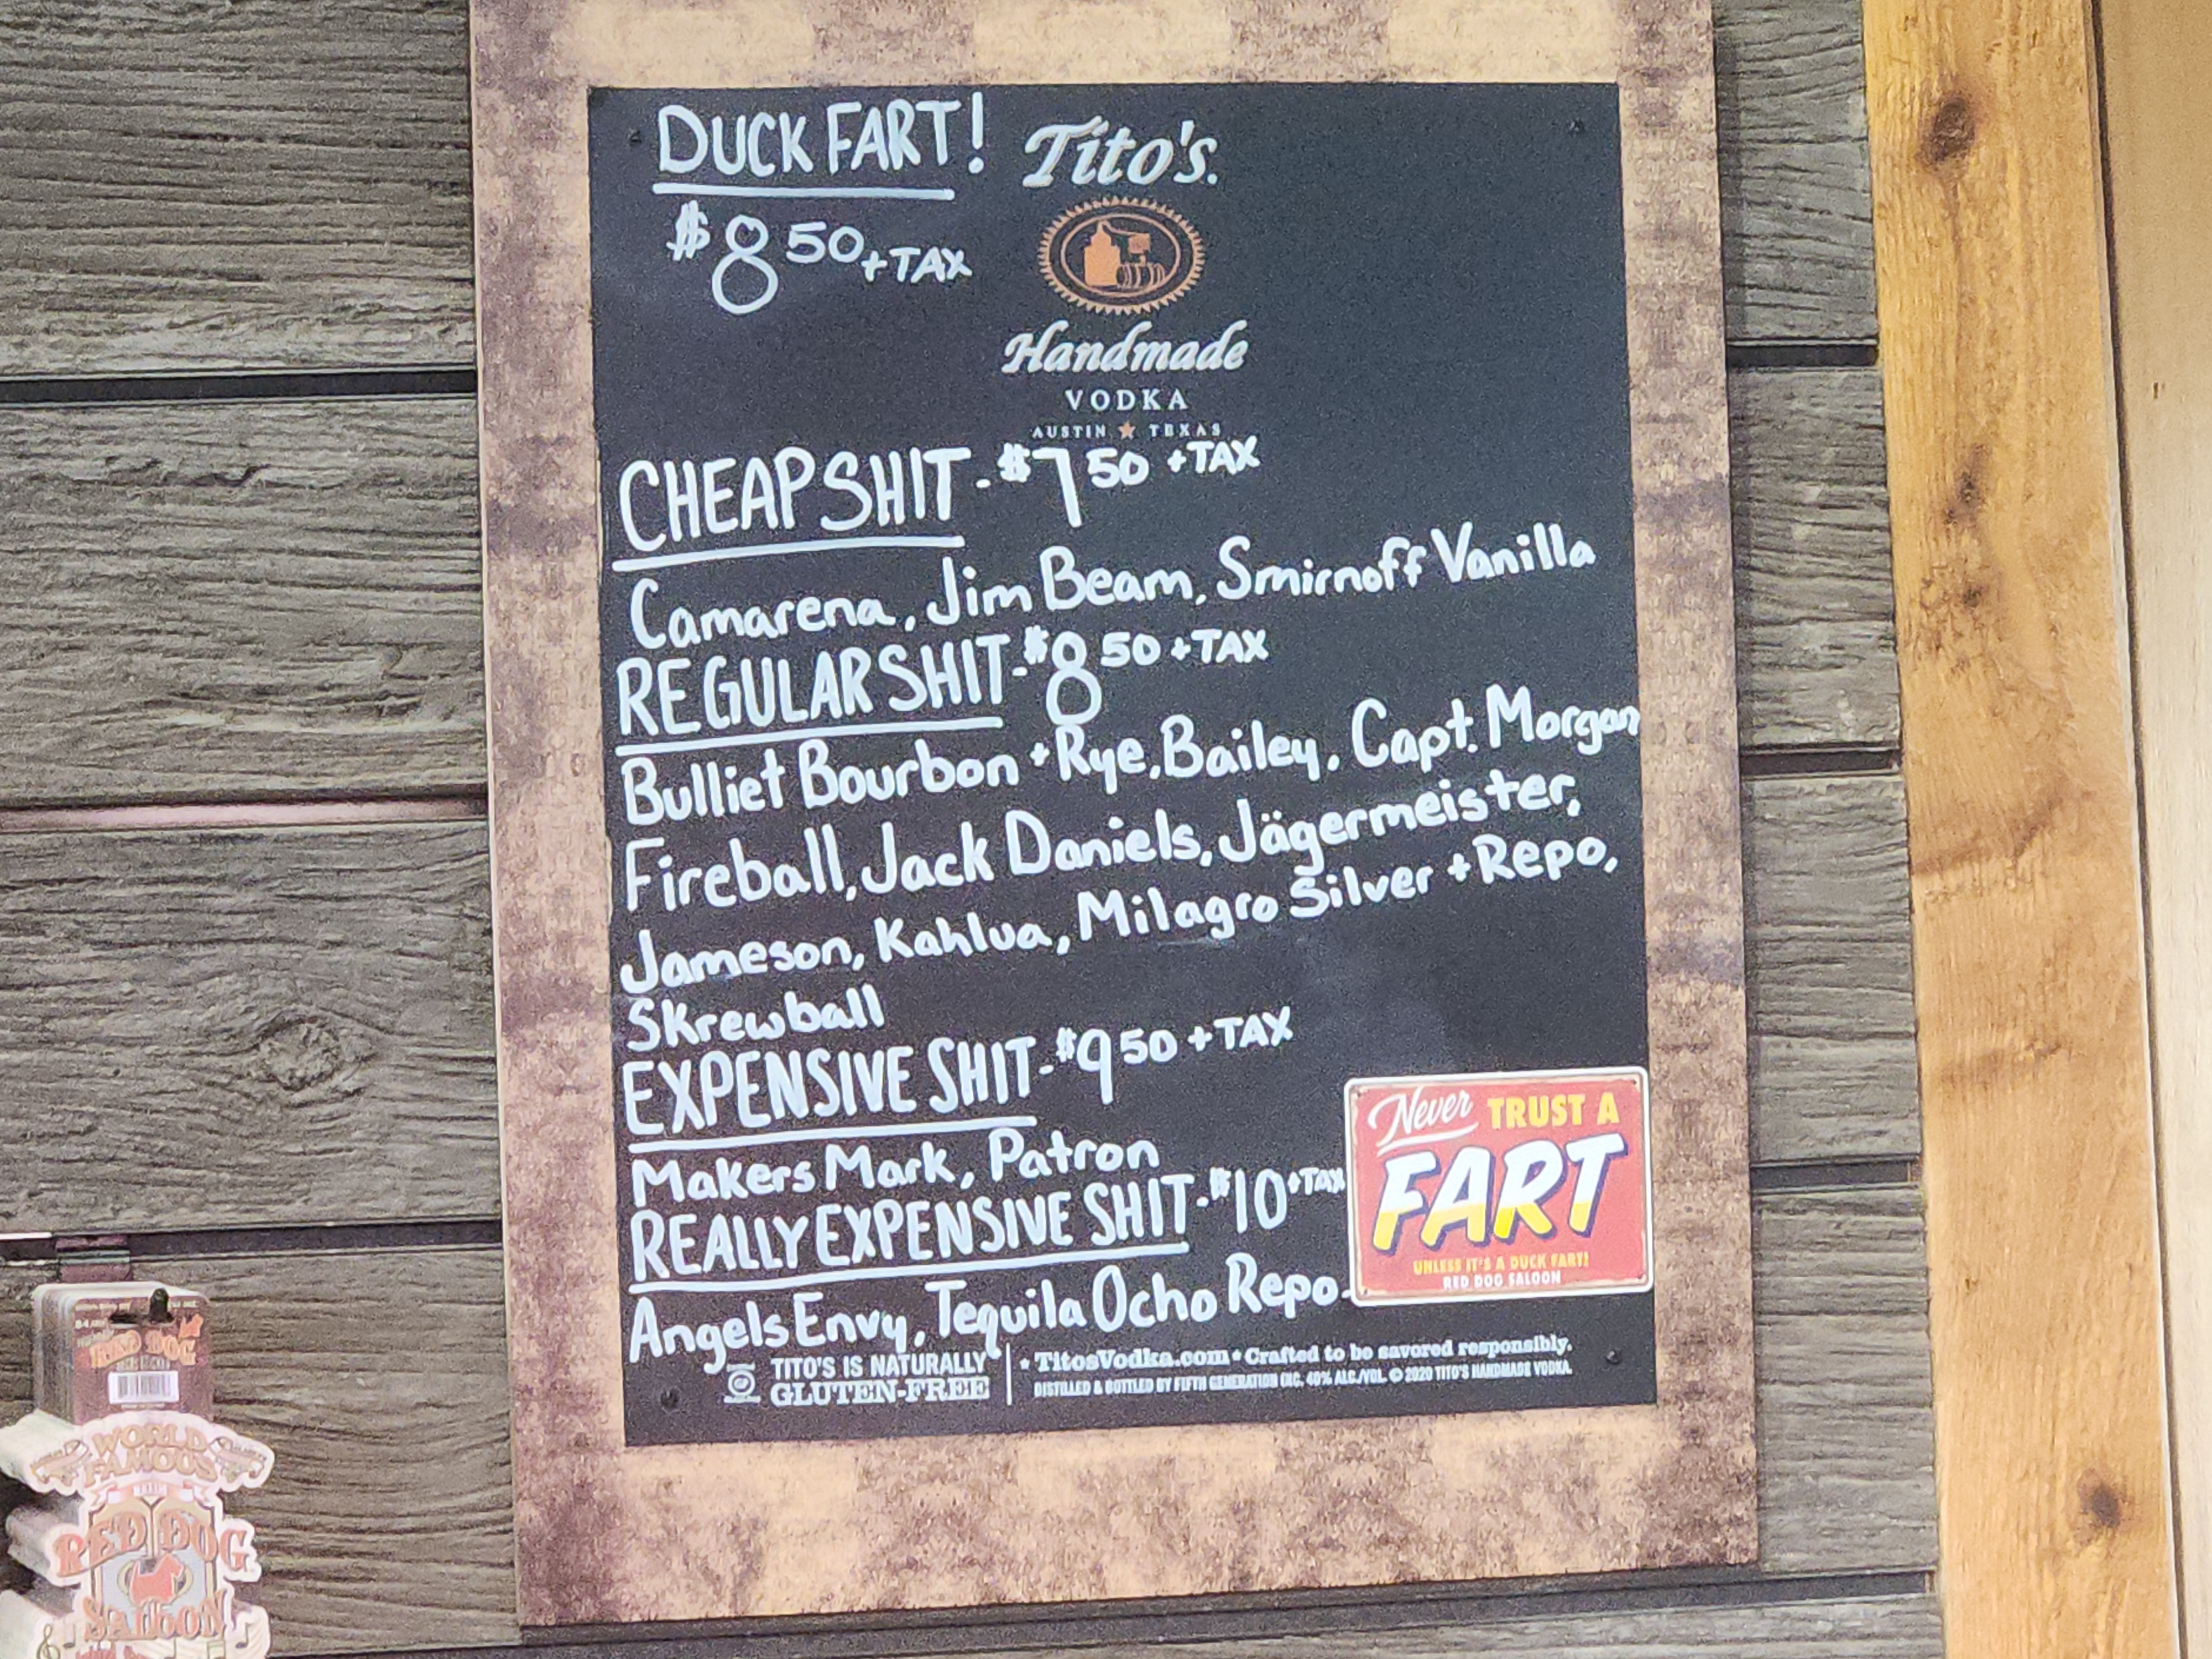 DUCK FART!
$8 50 + TAX
Tito's.
Handmade
VODKA
AUSTIN ★ TEXAS
CHEAP SHIT - $7 50 + TAX
Camarena, Jim Beam, Smirnoff Vanilla
REGULAR SHIT - $8 50 + TAX
Bulliet Bourbon + Rye, Bailey, Capt. Morgan
Fireball, Jack Daniels, Jägermeister,
Jameson, Kahlua, Milagro Silver + Repo,
Skrewball
EXPENSIVE SHIT - $9 50 + TAX
Makers Mark, Patron
REALLY EXPENSIVE SHIT - $10 + TAX
Angels Envy, Tequila Ocho Repo.
Never TRUST A
FART
UNLESS IT'S A DUCK FART!
RED DOG SALOON
TITO'S IS NATURALLY
GLUTEN-FREE
★ TitosVodka.com ★ Crafted to be savored responsibly.
DISTILLED & BOTTLED BY FIFTH GENERATION INC. 40% ALC./VOL. © 2020 TITO'S HANDMADE VODKA.
RED DOG
WORLD
FAMOUS
RED DOG
SALOON